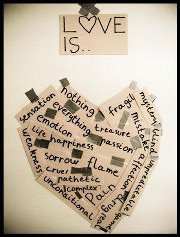 LOVE
IS..
nothing
sensation
fragile
mystery
everything
emotion
treasure
blind
life
happiness
passion
mistake
affection
weakness
sorrow
flame
cruel
pathetic
pain
drug
unconditional
complex
unpredictable